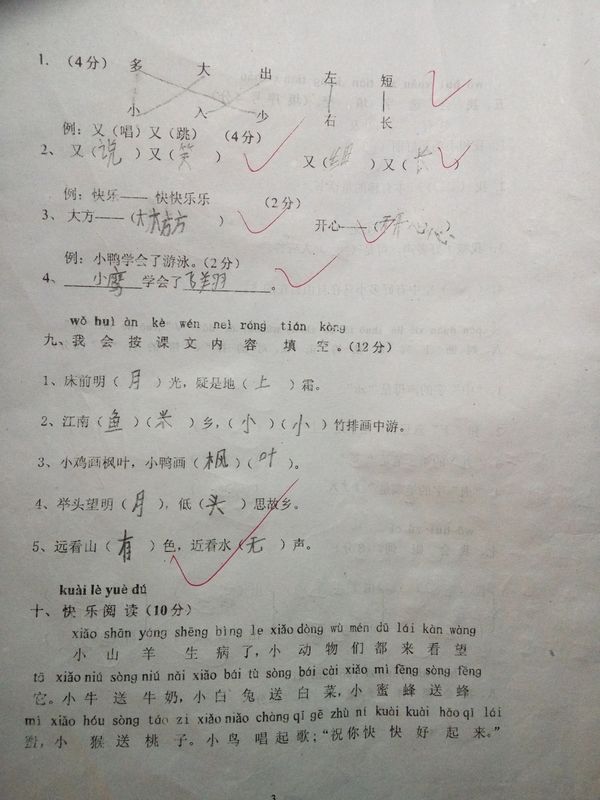 1. （4分） 多 大 出 左 短
小 入 少 右 长
例：又（唱）又（跳） （4分）
2、 又（说）又（笑） 又（细）又（长）
例：快乐—— 快快乐乐 （2分）
3、 大方——（大大方方） 开心——（开开心心）
例：小鸭学会了游泳。（2分）
4、 小鹰 学会了飞翔 。
wǒ huì àn kè wén neì róng tián kòng
九、我 会 按 课 文 内 容 填 空 。（12分）
1、床前明（月）光，疑是地（上）霜。
2、江南（鱼）（米）乡，（小）（小）竹排画中游。
3、小鸡画枫叶，小鸭画（枫）（叶）。
4、举头望明（月），低（头）思故乡。
5、远看山（有）色，近看水（无）声。
kuài lè yuè dú
十、快乐阅读（10分）
xiǎo shān yáng shēng bìng le xiǎo dòng wù mén dū lái kàn wàng
小 山 羊 生 病 了，小 动 物 们 都 来 看 望
tā xiǎo niú sòng niú nǎi xiǎo bái tù sòng bái cài xiǎo mì fēng sòng fēng
它。小 牛 送 牛 奶，小 白 兔 送 白 菜，小 蜜 蜂 送 蜂
mì xiǎo hóu sòng táo zi xiǎo niǎo chàng qǐ gē zhù ní kuài kuài hǎo qǐ lái
蜜，小 猴 送 桃 子。小 鸟 唱 起 歌：“祝 你 快 快 好 起 来。”
3